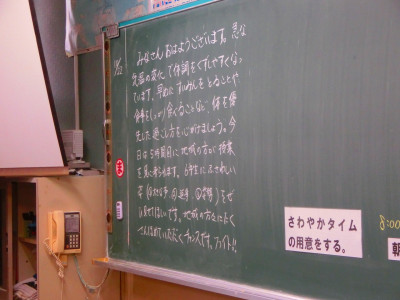 11/12
みなさん、おはようございます。急な
気温の変化で体調をくずしやすくなっ
ています。早めにすいみんをとることや
食事をしっかり食べることなど、体を優
先した過ごし方を心がけましょう。今
日は5時間目に地域の方が授業
を見に来られます。6年生にふさわしい
姿
をぜ
ひ見せてほしいです。地域の方々によく
てんほめていただくチャンスです。ファイト!!
さわやかタイム
の用意をする。
8:00
朝